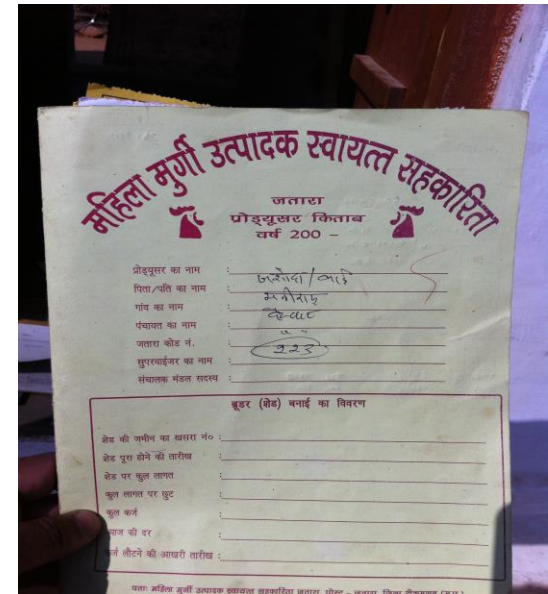 महिला मुर्गी उत्पादक स्वायत्त सहकारिता
जतारा
प्रोड्यूसर किताब
वर्ष 200 –
प्रोड्यूसर का नाम : जसोदा / बाई
पिता/पति का नाम :
गांव का नाम :
पंचायत का नाम : " "
जतारा कोड नं. : 223
सुपरवाईजर का नाम :
संचालक मंडल सदस्य :
ब्रूडर (शेड) बनाई का विवरण
शेड की जमीन का खसरा नं० :
शेड पूरा होने की तारीख :
शेड पर कुल लागत :
कुल लागत पर छुट :
कुल कर्ज :
ब्याज की दर :
कर्ज लौटने की आखरी तारीख :
पताः महिला मुर्गी उत्पादक स्वायत्त सहकारिता जतारा, पोस्ट - जतारा, जिला टीकमगढ़ (म.प्र.)